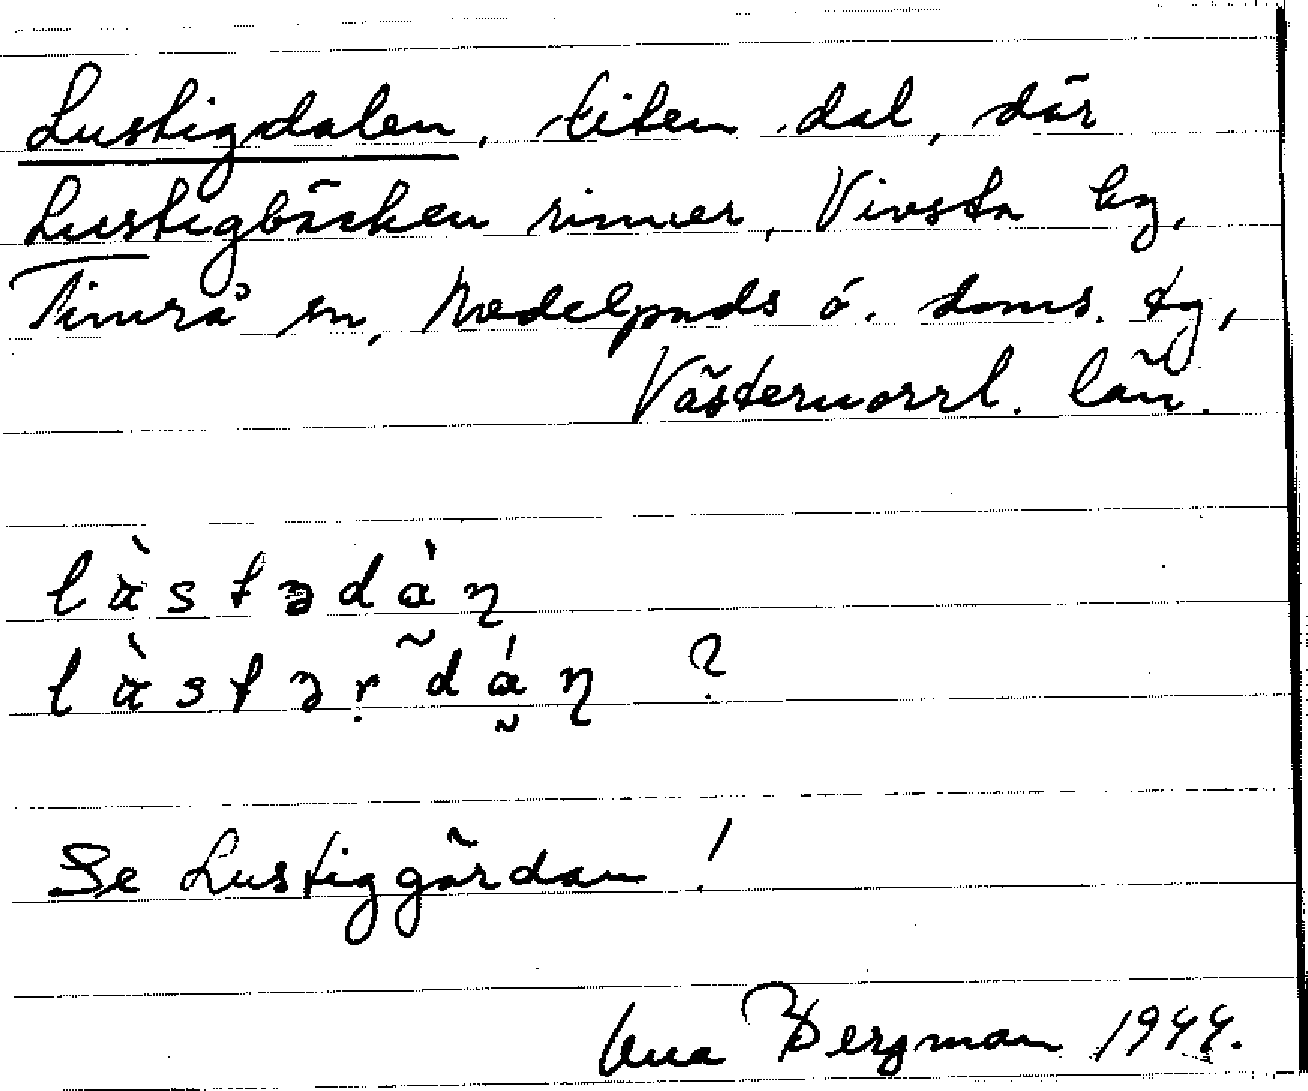 Lustigdalen, liten dal, där
Lustigbäcken rinner, Vivsta by,
Timrå sn, Medelpads ö. doms. tg,
Västernorrl. län.
là̀stədáη
là̀stəṛ dáη ?
Se Lustiggärdan !
Bergman 1944.